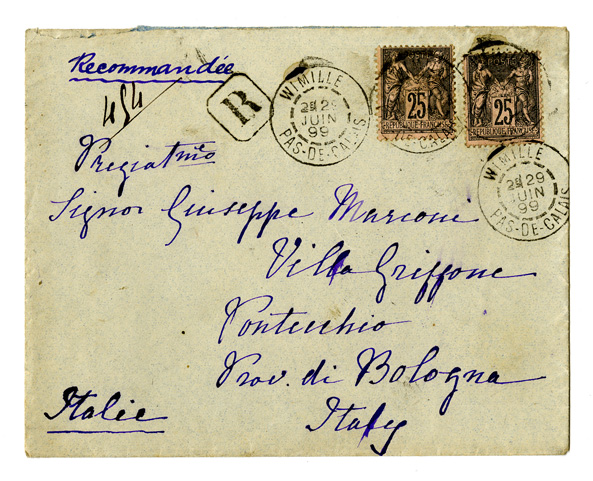 Recommandée
494
R
WIMILLE
2E 29
JUIN
99
PAS-DE-CALAIS
POSTE
25
REPUBLIQUE FRANÇAISE
POSTE
25
REPUBLIQUE FRANÇAISE
WIMILLE
2E 29
JUIN
99
PAS-DE-CALAIS
Pregiatmo
Signor Giuseppe Marconi
Villa Griffone
Pontecchio
Prov. di Bologna
Italie
Italy